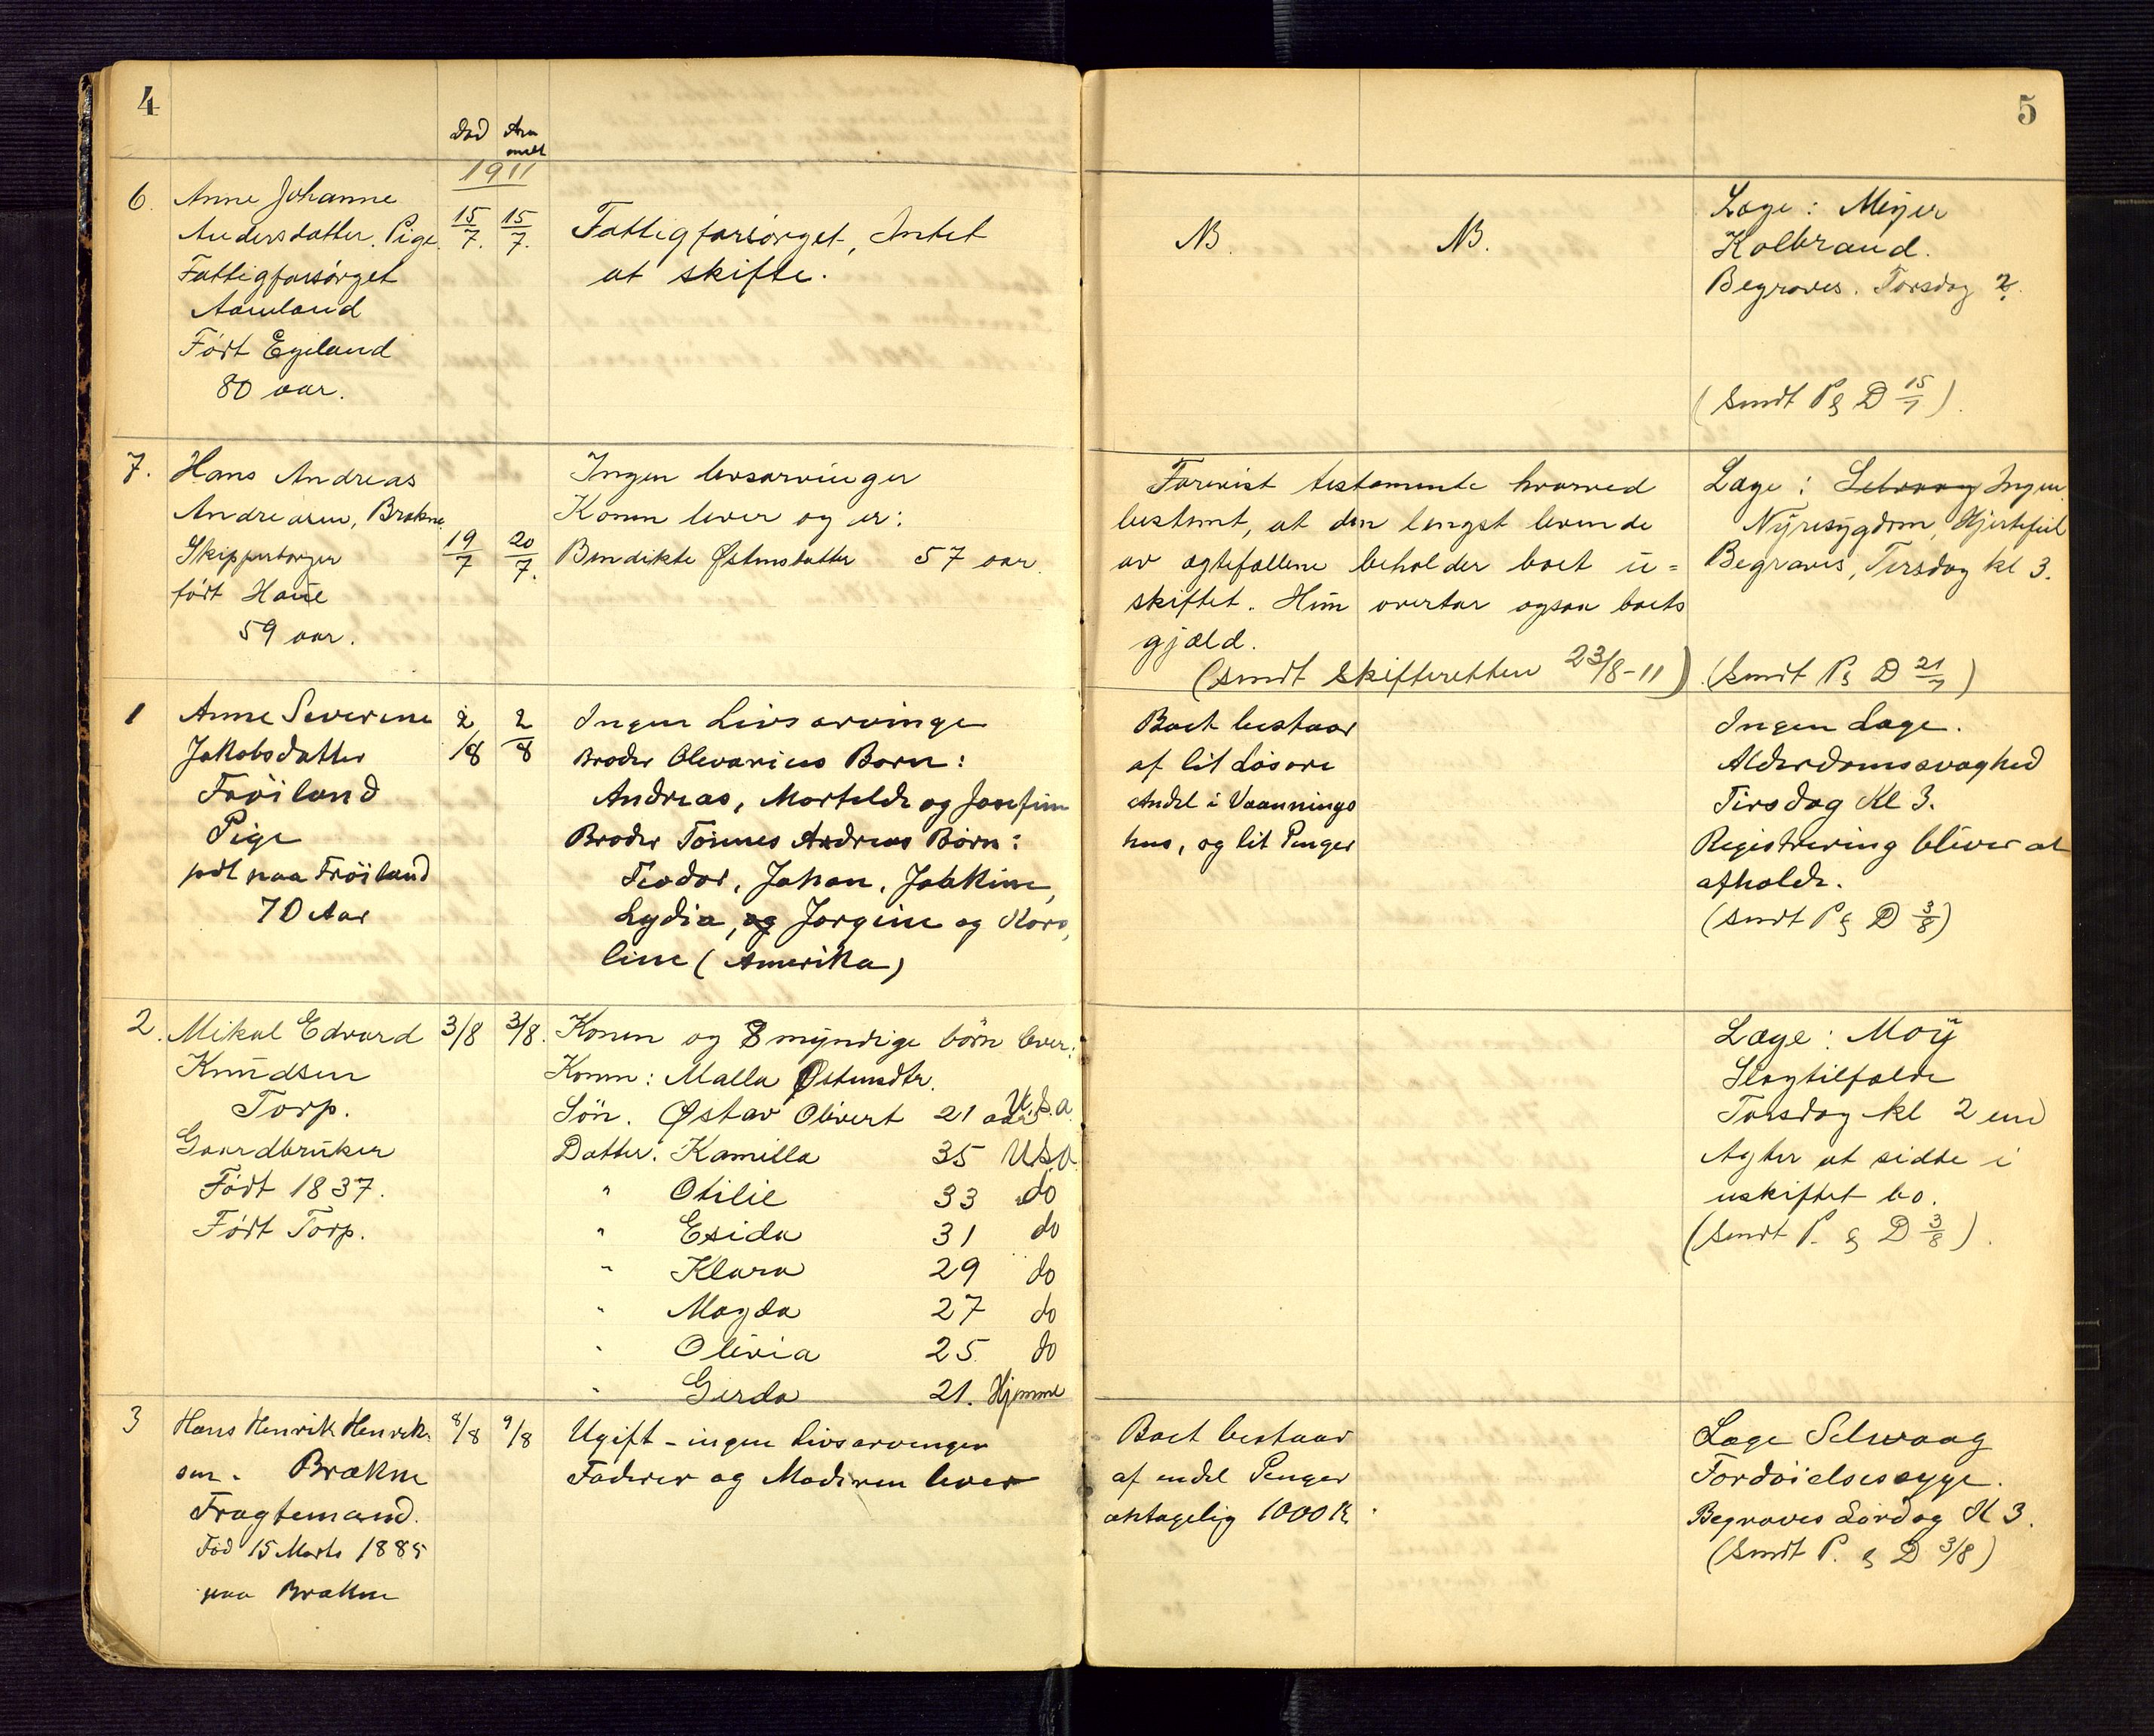 4
5
Død An
melt
1911
6. Anne Johanne
Andersdatter. Pige
Fattigforsørget
Aamland
Født Egeland
80 aar.
15/7. 15/7.
Fattigforsørget, Intet
at skifte.
NB. NB.
Læge: Meyer
Kolbrand.
Begraves. Torsdag 2.
(sendt P & D 15/7).
7. Hans Andreas
Andreasen, Brækne
Skipperborger
født Haue
59 aar.
19/7 20/7.
Ingen livsarvinger
Konen lever og er:
Bendikte Østensdatter 57 aar.
Forevist testamente hvorved
bestemt, at den lengst levende
av egtefællene beholder boet u=
skiftet. Hun overtar ogsaa boets
gjæld.
(sendt skifteretten 23/8-11)
Læge: Selvaag Ingen
Nyresygdom, Hjertefeil
Begraves, Tirsdag kl 3.
(sendt P & D 21/7)
1 Anne Severine
Jakobsdatter
Frøiland
Pige
født paa Frøiland
70 Aar
2/8 2/8
Ingen Livsarvinge
Broder Olevarius Børn:
Andreas, Matelde og Josefine
Broder Tønnes Andreas Børn:
Teodor, Johan, Joakime,
Lydia, og Jorgine og Karo,
line (Amerika)
Boet bestaar
af lit Løsøre
Andel i Vaanings
hus, og lit Penger
Ingen Læge.
Alderdomssvaghed
Tirsdag Kl 3.
Registrering bliver at
afholde.
(sendt P & D 3/8)
2. Mikal Edvard
Knudsen
Torp.
Gaardbruker
Født 1837.
Født Torp.
3/8 3/8.
Konen og 8 myndige børn lever:
Konen: Malla Østensdtr.
Søn. Østav Olivert 21 aar U.S.a.
Datter: Kamilla 35 U.S.a.
" Otilie 33 do
" Esida 31 do
" Klara 29 do
" Magda 27 do
" Olivia 25 do
" Gerda 21. Hjemme
Læge: Moÿ
Slagtilfælde
Torsdag kl 2 em
Agter at sidde i
uskiftet bo.
(sendt P. & D 3/8).
3 Hans Henrik Henrik-
sen. Brækne
Fragtemand.
Fød 15 Marts 1885
paa Brækne
8/8 9/8
Ugift - ingen Livsarvinger
Faderen og Moderen lever
Boet bestaar
af endel Penger
antagelig 1000 Kr.
Læge Selvaag
Fordøielsessyge.
Begraves Lørdag Kl 3.
(sendt P. & D 3/8)